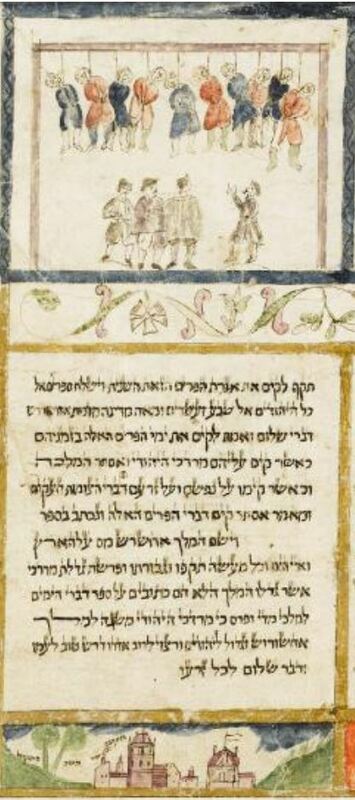 תקף לקים את אגרת הפרים הזאת השנית וישלח ספרים אל
כל היהודים אל שבע ועשרים ומאה מדינה מלכות אחשורוש
דברי שלום ואמת לקים את ימי הפרים האלה בזמניהם
כאשר קים עליהם מרדכי היהודי ואסתר המלכה
וכאשר קימו על נפשם ועל זרעם דברי הצומות וזעקתם
ומאמר אסתר קים דברי הפרים האלה ונכתב בספר
וישם המלך אחשרש מס על הארץ
ואיי הים וכל מעשה תקפו וגבורתו ופרשת גדלת מרדכי
אשר גדלו המלך הלא הם כתובים על ספר דברי הימים
למלכי מדי ופרס כי מרדכי היהודי משנה למלך
אחשורוש וגדול ליהודים ורצוי לרוב אחיו דרש טוב לעמו
ודבר שלום לכל זרעו